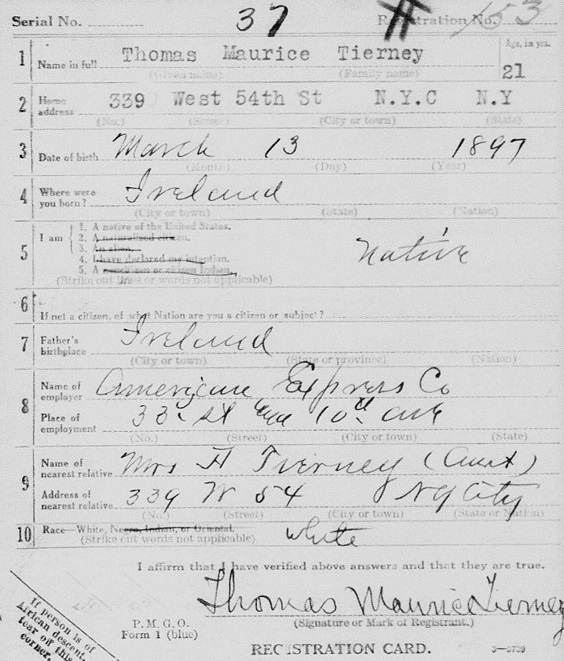 Serial No. 37 Registration No. 153
1 Name in full Thomas Maurice Tierney Age, in yrs.
(Given name) (Family name) 21
2 Home address 339 West 54th St N.Y.C N.Y
(No.) (Street) (City or town) (State)
3 Date of birth March 13 1897
(Month) (Day) (Year)
4 Where were you born? Ireland
(City or town) (State) (Nation)
5 I am
1. A native of the United States.
2. A naturalized citizen.
3. An alien.
4. I have declared my intention.
5. A noncitizen or citizen Indian.
(Strike out lines or words not applicable)
Native
6 If not a citizen, of what Nation are you a citizen or subject?
7 Father's birthplace Ireland
(City or town) (State or province) (Nation)
8 Name of employer American Express Co
Place of employment 33 St and 10th ave
(No.) (Street) (City or town) (State)
9 Name of nearest relative Mrs H Tierney (Aunt)
Address of nearest relative 339 W 54 N Y City
(No.) (Street) (City or town) (State or Nation)
10 Race—White, Negro, Indian, or Oriental.
(Strike out words not applicable) white
I affirm that I have verified above answers and that they are true.
Thomas Maurice Tierney
P. M. G. O.
Form 1 (blue)
(Signature or Mark of Registrant.)
REGISTRATION CARD.
If person is of
African descent,
tear off this
corner.